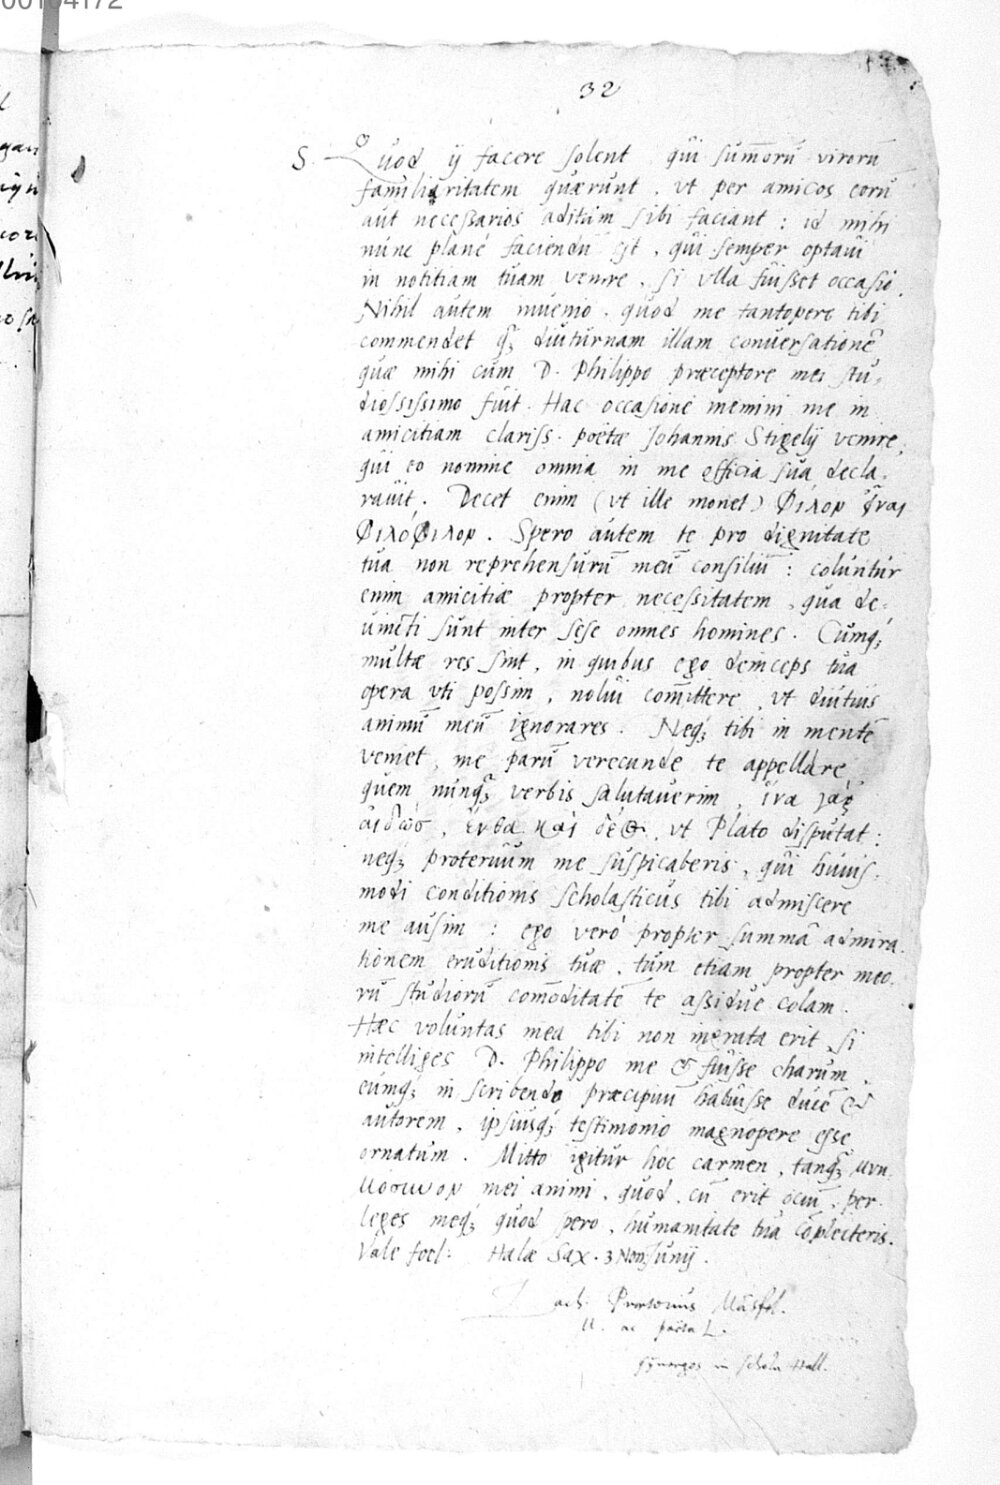 32
S. Quod ij facere solent qui summorū virorū
familiaritatem quærunt, vt per amicos eorū
aut necessarios aditum sibi faciant : id mihi
nunc plane faciendū est, qui semper optaui
in notitiam tuam venire, si vlla fuisset occasio.
Nihil autem inuenio, quod me tantopere tibi
commendet q̄ꝫ diuturnam illam conuersationē
quæ mihi cum D. Philippo præceptore mei stu-
diosissimo fuit. Hac occasione memini me in
amicitiam clariss. poëtæ Johannis Stigelij venire,
qui eo nomine omnia in me officia sua decla-
rauit. Decet enim (vt ille monet) φίλον εἶναι
φιλόφιλον. Spero autem te pro dignitate
tua non reprehensurū meū consiliū : coluntur
enim amicitiæ propter necessitatem, qua de-
uincti sunt inter sese omnes homines. Cumqꝫ
multæ res sint, in quibus ego deinceps tua
opera vti possim, nolui com̄ittere, vt diutius
animū meū ignorares. Neqꝫ tibi in mentē
veniet, me parū verecunde te appellare,
quem nunq̄ꝫ verbis salutauerim, ἵνα γὰρ
αἰδὼς, ἔνθα καὶ δέος, vt Plato disputat :
neqꝫ proteruum me suspicaberis, qui huius-
modi conditionis scholasticus tibi admiscere
me ausim : ego verò propter summā admira-
tionem eruditionis tuæ, tum etiam propter meo-
rū studiorū com̄oditatē te assidue colam.
Hæc voluntas mea tibi non ingrata erit, si
intelliges D. Philippo me & fuisse charum,
eumqꝫ in scribendo præcipuū habuisse ducē &
autorem, ipsiusqꝫ testimonio magnopere esse
ornatum. Mitto igitur hoc carmen, tanq̄ꝫ μνη-
μόσυνον mei animi, quod, cū erit ociū, per-
leges meqꝫ quod spero, humanitate tua cōplecteris.
Vale foel: Halæ Sax. 3 Non Junij.
Zach. Prætorius Māsfel.
M. ac poëta L.
synergos in schola Hall.